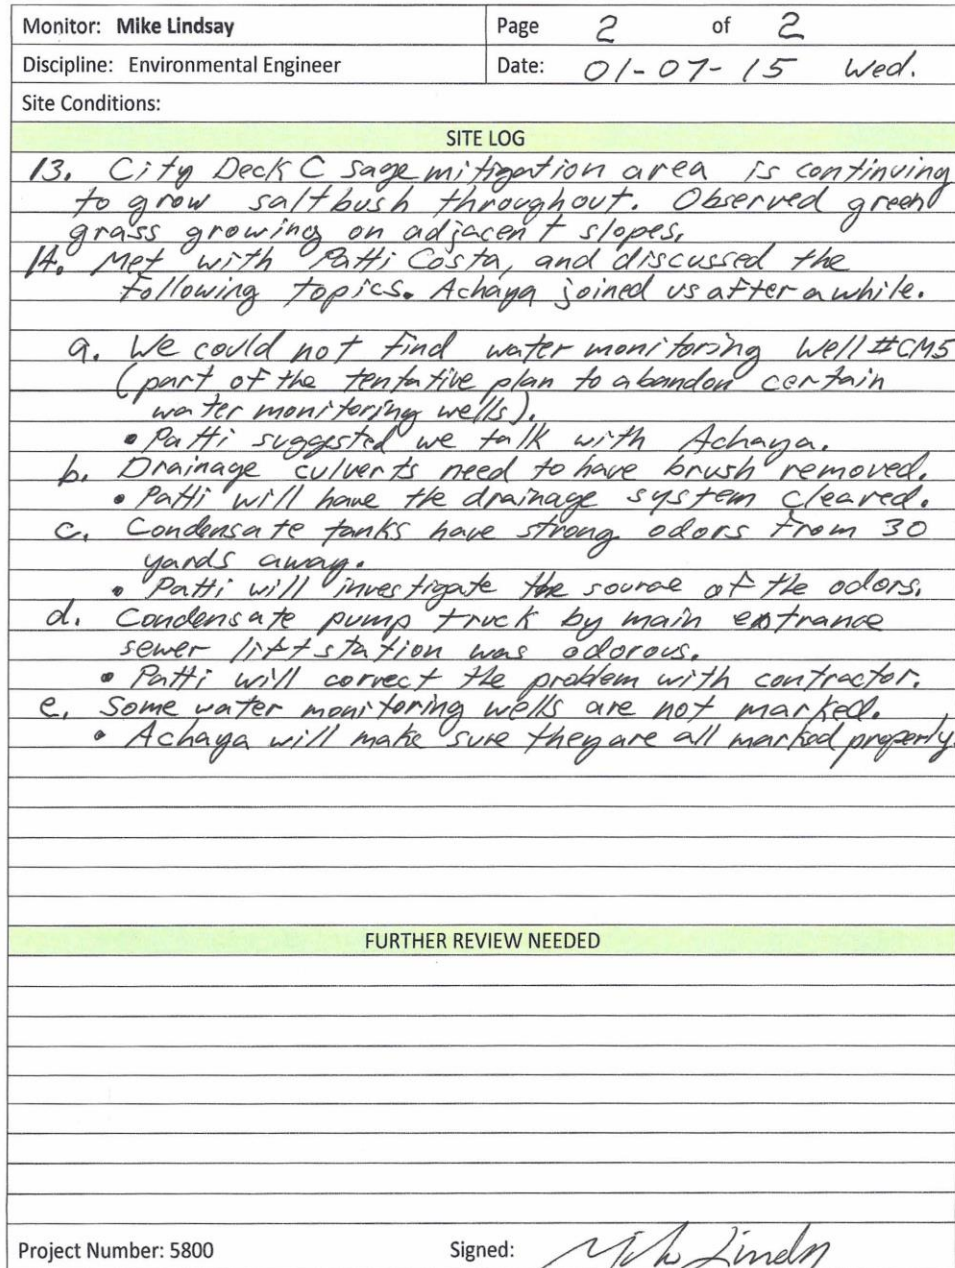 Monitor: Mike Lindsay
Page 2 of 2
Discipline: Environmental Engineer
Date: 01-07-15 Wed.
Site Conditions:
SITE LOG
13. City Deck C sage mitigation area is continuing
to grow saltbush throughout. Observed green
grass growing on adjacent slopes.
14. Met with Patti Costa, and discussed the
following topics. Achaya joined us after awhile.
a. We could not find water monitoring Well #CM5
(part of the tentative plan to abandon certain
water monitoring wells).
• Patti suggested we talk with Achaya.
b. Drainage culverts need to have brush removed.
• Patti will have the drainage system cleared.
c. Condensate tanks have strong odors from 30
yards away.
• Patti will investigate the source of the odors.
d. Condensate pump truck by main entrance
sewer lift station was odorous.
• Patti will correct the problem with contractor.
e. Some water monitoring wells are not marked.
• Achaya will make sure they are all marked properly.
FURTHER REVIEW NEEDED
Project Number: 5800
Signed: Mike Lindsay